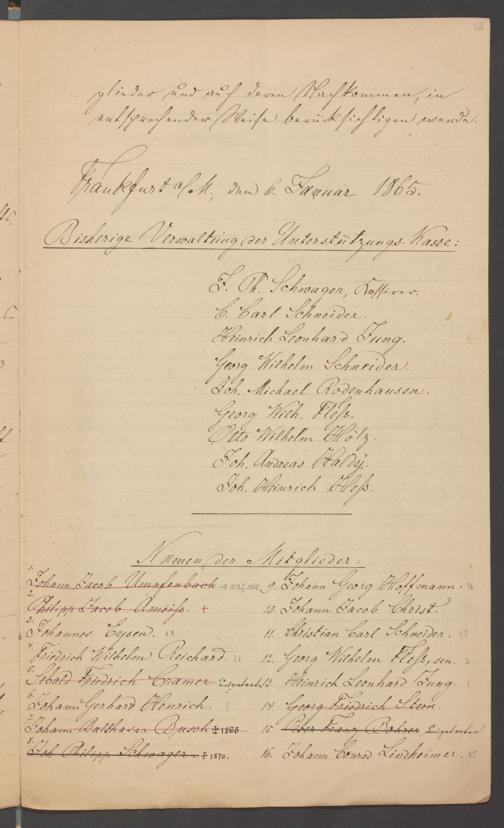 23
glieder und auf deren Nachkommen, in
entsprechender Weise berücksichtigen werde.
Frankfurt a/M, den 6. Januar 1865.
Bisherige Verwaltung der Unterstützungs-Kasse:
J. Ph. Schwager, Kassirer.
C. Carl Schneider.
Heinrich Leonhard Jung.
Georg Wilhelm Schneider.
Joh. Michael Rodenhausen.
Georg Wilh. Fleß.
Otto Wilhelm Hölz.
Joh. Andreas Haldy.
Joh. Heinrich Heß.
Namen der Mitglieder:
1. Johann Jacob Umpfenbach
2. Philipp Jacob Ameiß. +
3. Johannes Eysen.
4. Friedrich Wilhelm Reichard.
5. Sebald Friedrich Cramer
6. Johann Gerhard Henrich.
7. Johann Balthasar Busch + 1865
8. Joh. Philipp Schwager. + 1870.
9. Johann Georg Hoffmann.
10. Johann Jacob Christ.
11. Christian Carl Schneider.
12. Georg Wilhelm Fleß, sen.
13. Heinrich Leonhard Jung.
14. Georg Friedrich Stern.
15. Peter Franz Bohrer
16. Johann Conrad Lindheimer.